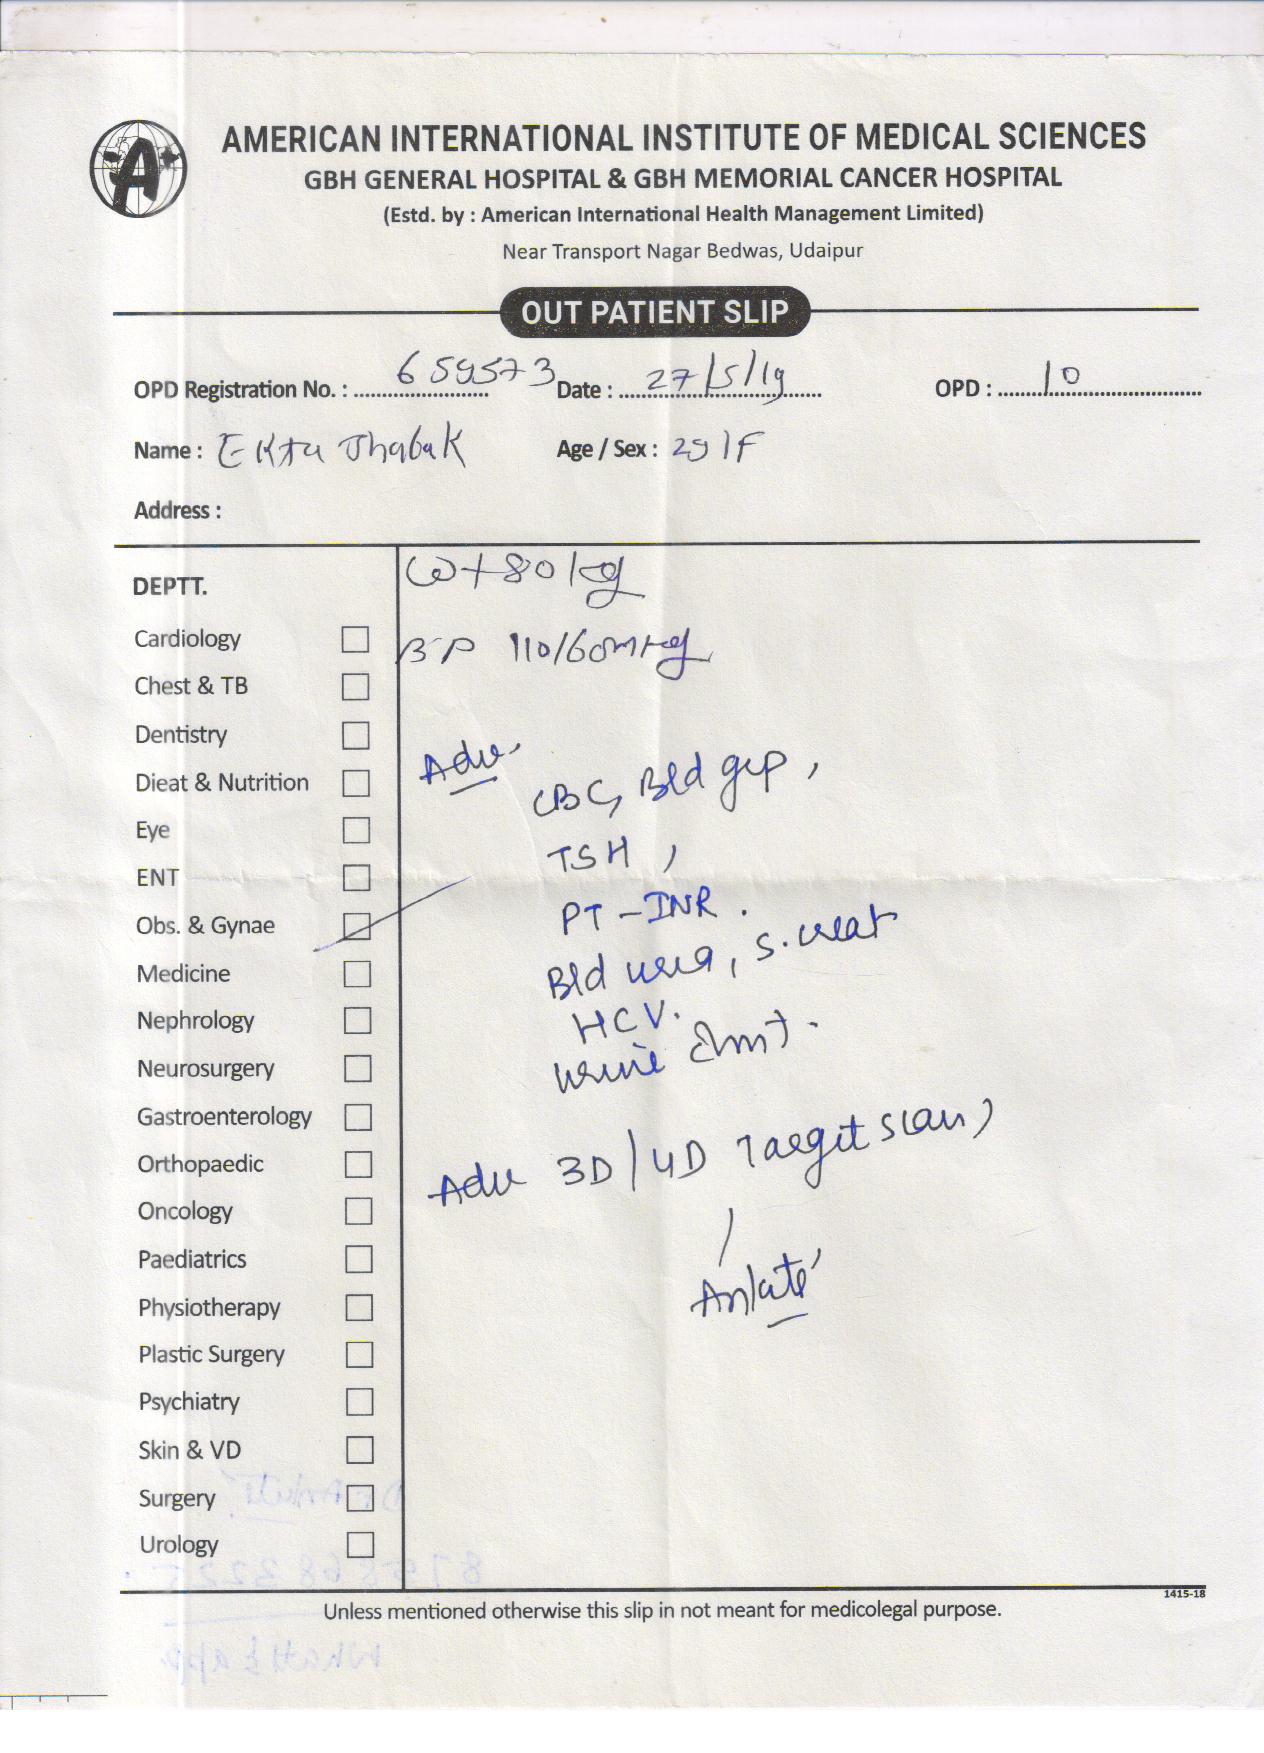 AMERICAN INTERNATIONAL INSTITUTE OF MEDICAL SCIENCES
GBH GENERAL HOSPITAL & GBH MEMORIAL CANCER HOSPITAL
(Estd. by : American International Health Management Limited)
Near Transport Nagar Bedwas, Udaipur
OUT PATIENT SLIP
OPD Registration No. : 659573 Date : 27/5/19 OPD : 10
Name : Ekta Jhabak Age / Sex : 29/F
Address :
DEPTT.
Cardiology
Chest & TB
Dentistry
Dieat & Nutrition
Eye
ENT
Obs. & Gynae
Medicine
Nephrology
Neurosurgery
Gastroenterology
Orthopaedic
Oncology
Paediatrics
Physiotherapy
Plastic Surgery
Psychiatry
Skin & VD
Surgery
Urology
Wt 80 kg
BP 110/60 mmHg
Adv.
CBC, Bld grp,
TSH,
PT-INR.
Bld urea, S. creat
HCV.
Urine
Adv 3D/4D Target scan,
Unless mentioned otherwise this slip in not meant for medicolegal purpose.
1415-18